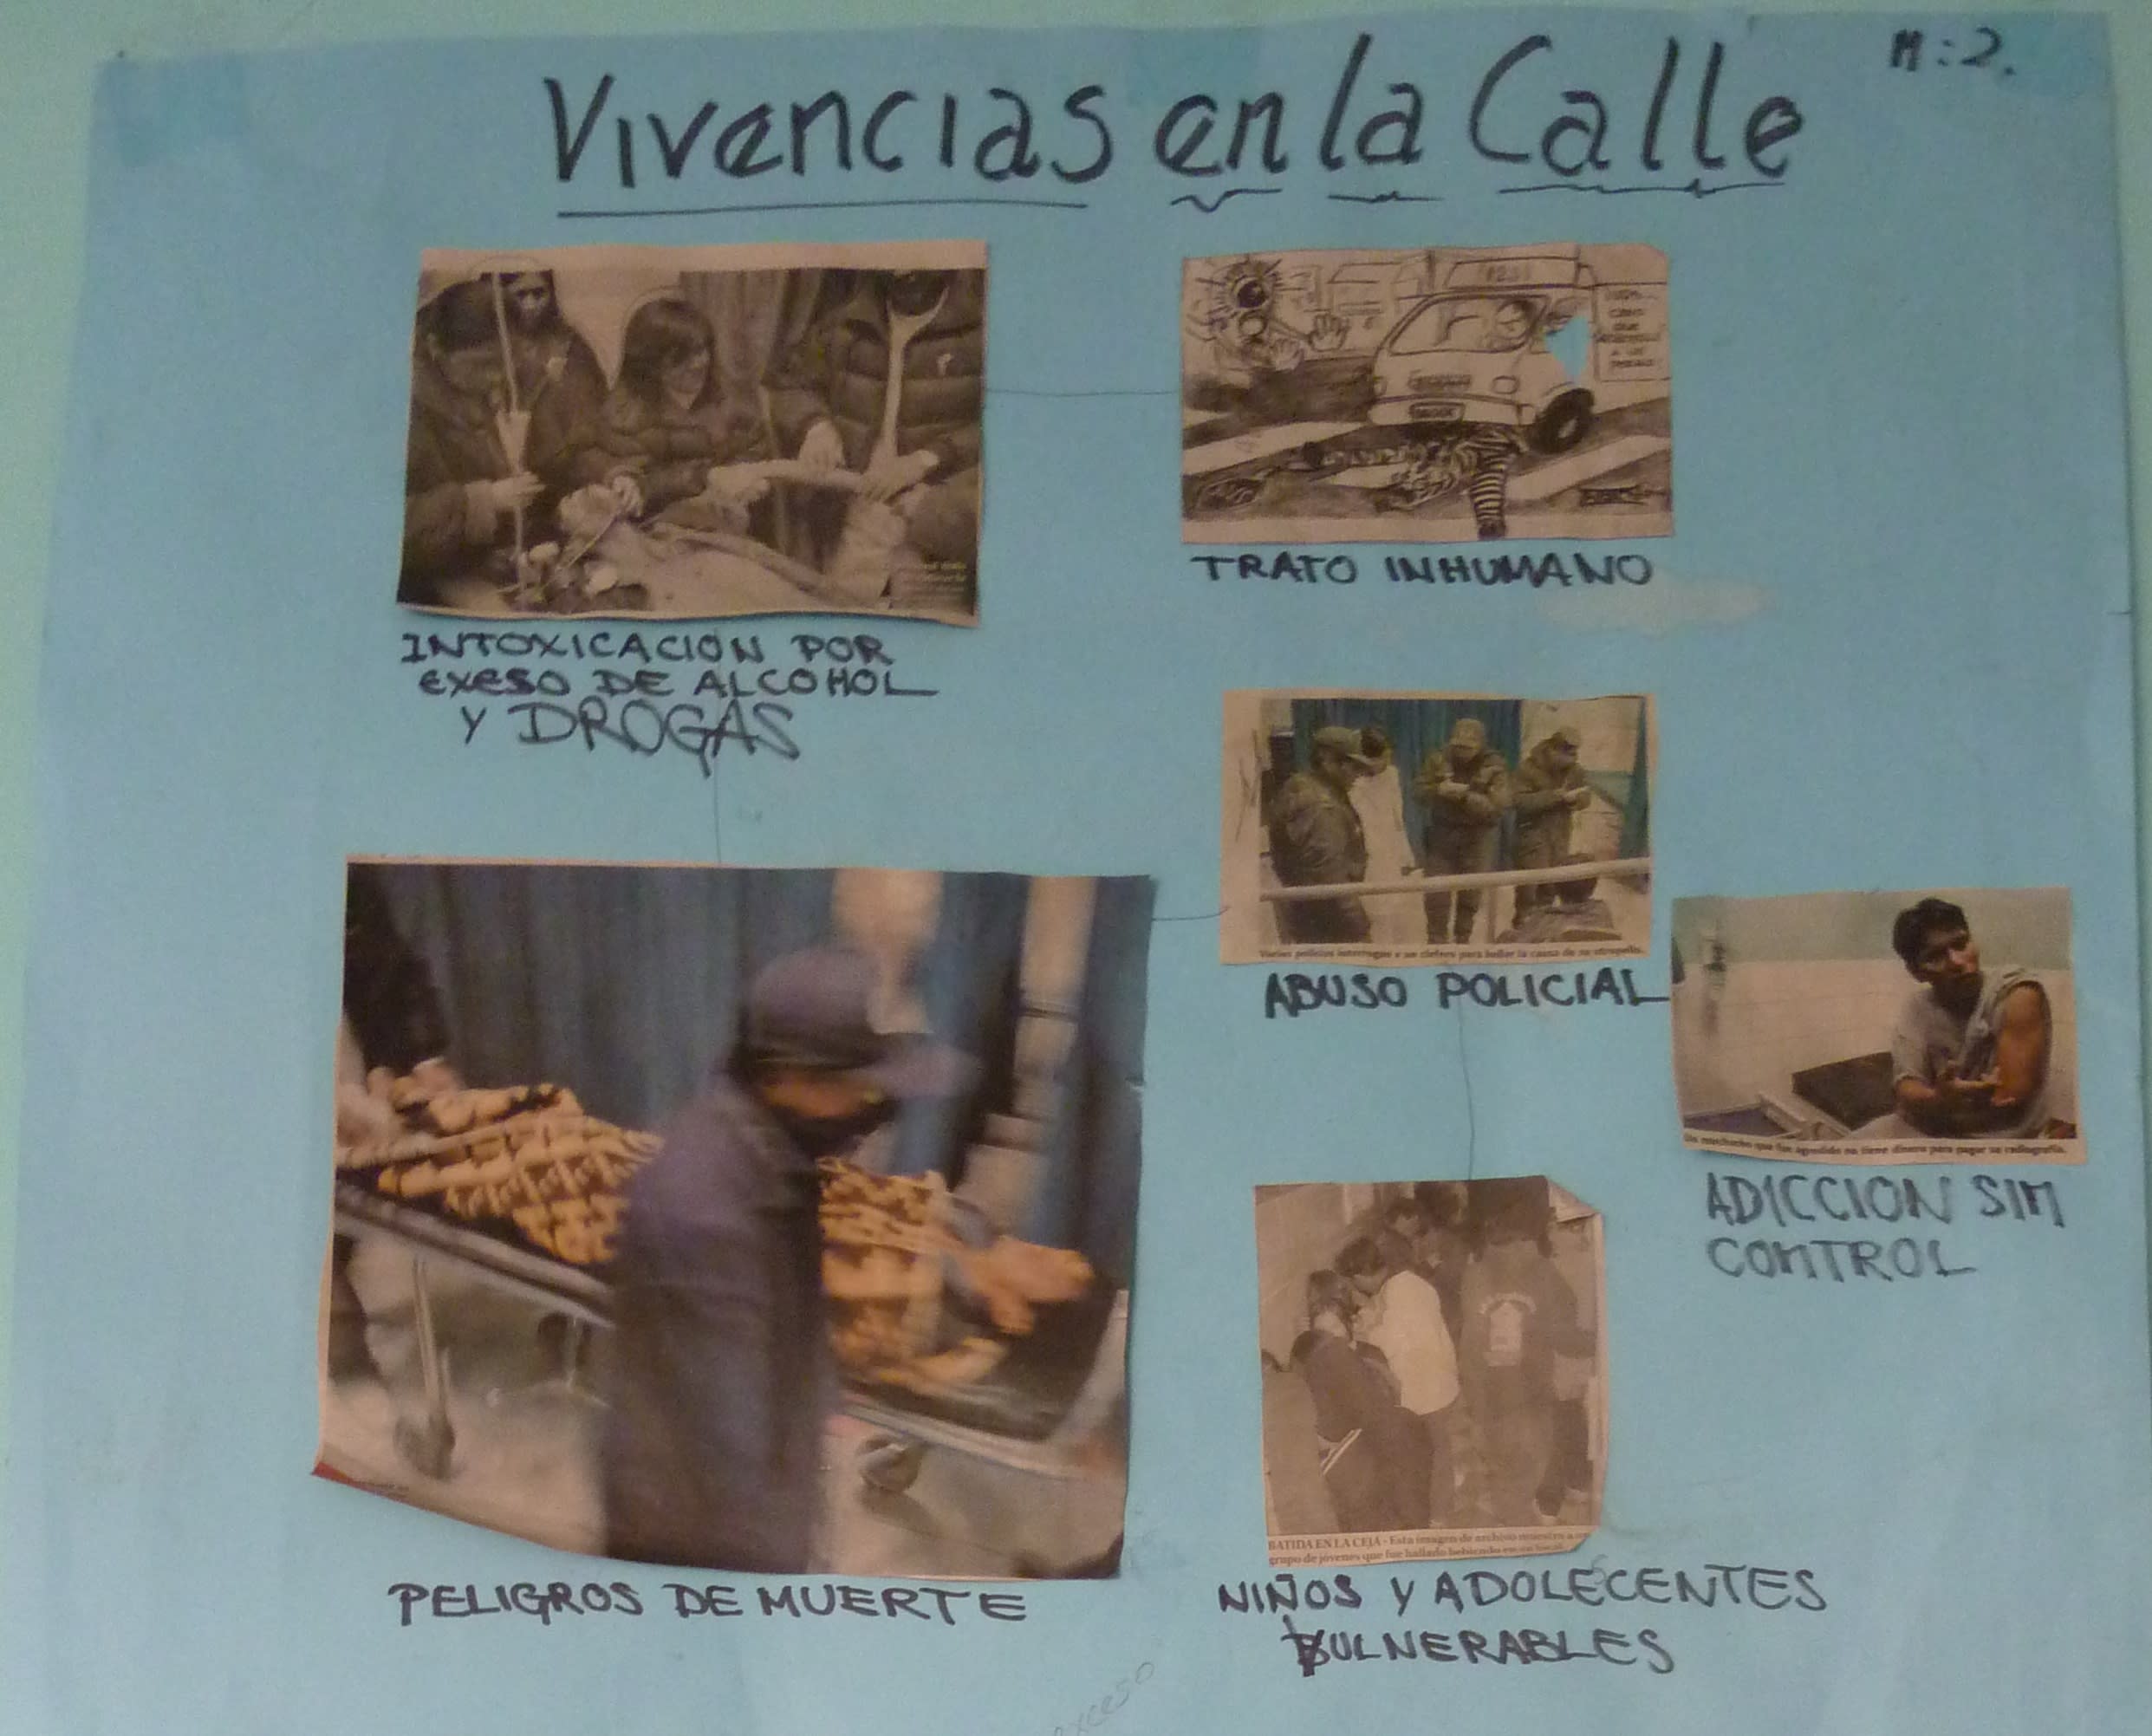 Vivencias en la Calle
M:2.
INTOXICACIÓN POR
EXESO DE ALCOHOL
Y DROGAS
TRATO INHUMANO
Varios policías interrogan a un clefero para hallar la causa de su atropello.
ABUSO POLICIAL
Un muchacho que fue agredido no tiene dinero para pagar su radiografía.
ADICCION SIM
COMTROL
PELIGROS DE MUERTE
BATIDA EN LA CEJA - Esta imagen de archivo muestra a un
grupo de jóvenes que fue hallado bebiendo en un local.
NIÑOS Y ADOLECENTES
VULNERABLES
exceso